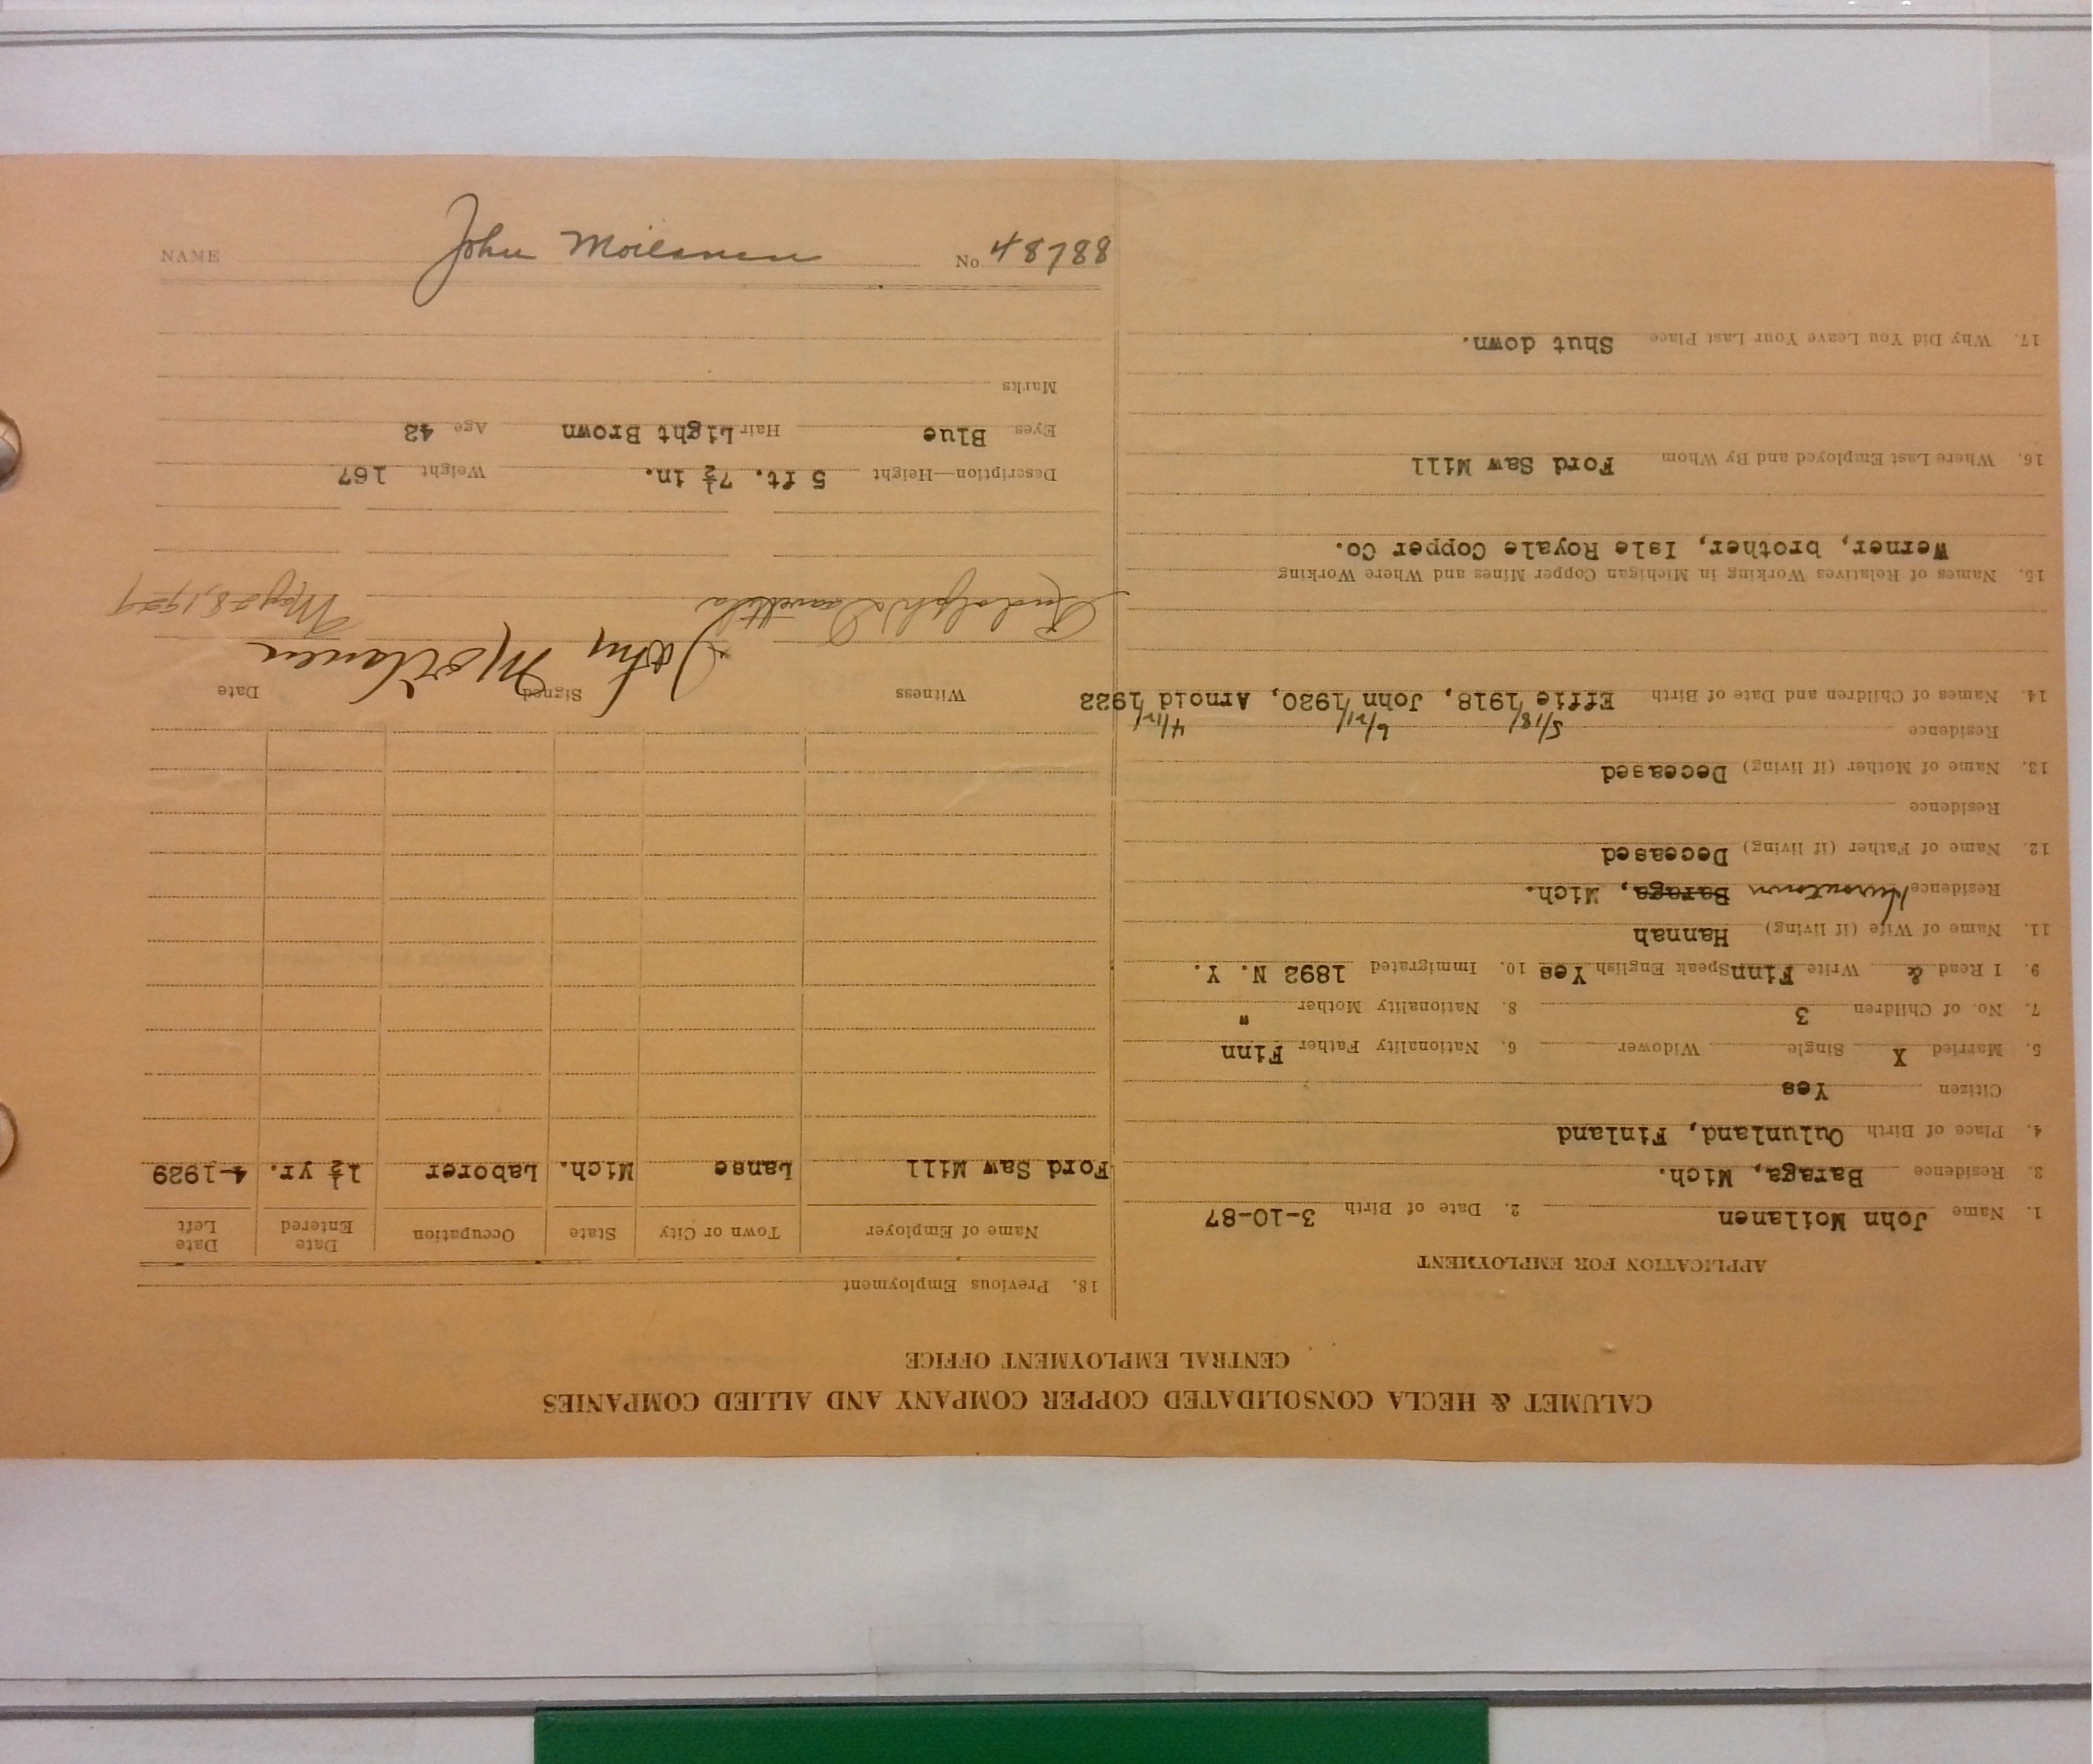 CALUMET & HECLA CONSOLIDATED COPPER COMPANY AND ALLIED COMPANIES
CENTRAL EMPLOYMENT OFFICE
APPLICATION FOR EMPLOYMENT
1. Name John Moilanen 2. Date of Birth 3-10-87
3. Residence Baraga, Mich.
4. Place of Birth Oulunland, Finland
Citizen Yes
5. Married X Single Widower 6. Nationality Father Finn
7. No. of Children 3 8. Nationality Mother "
9. I Read & Write Finn Speak English Yes 10. Immigrated 1892 N. Y.
11. Name of Wife (if living) Hannah
Residence Baraga, Mich.
12. Name of Father (if living) Deceased
Residence
13. Name of Mother (if living) Deceased
Residence
5/18/ 6/21/ 4/12/
14. Names of Children and Date of Birth Effie 1918, John 1920, Arnold 1922
15. Names of Relatives Working in Michigan Copper Mines and Where Working
Werner, brother, Isle Royale Copper Co.
16. Where Last Employed and By Whom Ford Saw Mill
17. Why Did You Leave Your Last Place Shut down.
18. Previous Employment
Name of Employer Town or City State Occupation Date Entered Date Left
Ford Saw Mill Lanse Mich. Laborer 1½ yr. 4-1929
Witness Signed Date
Rudolph John Moilanen May 28, 1929
Description—Height 5 ft. 7½ in. Weight 167
Eyes Blue Hair Light Brown Age 42
Marks
NAME John Moilanen No 48788